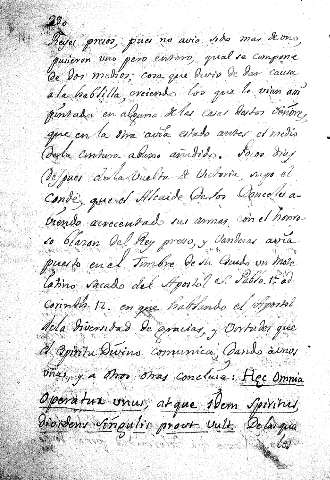 Reyes presos, pues no avia sido mas de uno,
pusieron uno pero entero, qual se compone
de dos medios; cosa que devio de dar causa
a la hablilla, creiendo los que lo vian assi
pintado en alguna de las casas destos Señores,
que en la otra avia estado antes el medio
de la cintura abaxo añadido. Pocos dias
despues de la vuelta de Victoria, supo el
Conde, que el Alcaide de los Donceles a-
viendo acrecentado sus armas con el honro-
so blazon del Rey preso, y Vanderas avia
puesto en el Timbre de su Escudo un mote
latino sacado del Apostol S. Pablo 1ª ad
Corinth 12. en que hablando el Apostol
de la diversidad de gracias, y Virtudes que
el Spiritu Divino comunica, dando a unos
unas, y a otros otras concluia: Hęc Omnia
Operatur unus, atque idem Spiritus,
dividens singulis prout vult. De la qual